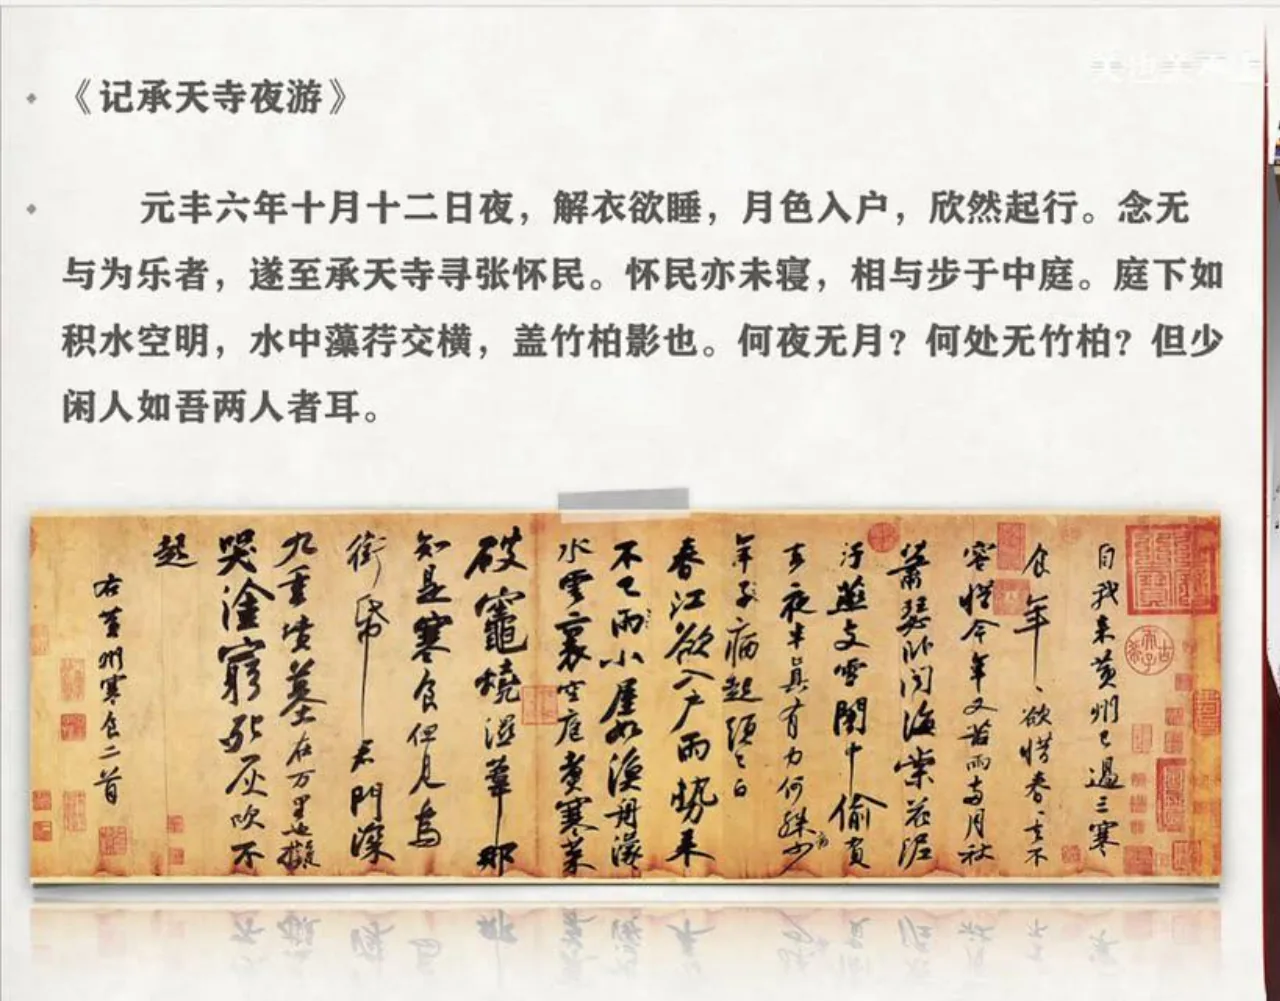 《记承天寺夜游》
元丰六年十月十二日夜，解衣欲睡，月色入户，欣然起行。念无
与为乐者，遂至承天寺寻张怀民。怀民亦未寝，相与步于中庭。庭下如
积水空明，水中藻荇交横，盖竹柏影也。何夜无月？何处无竹柏？但少
闲人如吾两人者耳。
自我来黄州已過三寒
食年、欲惜春、去不
容惜今年又苦雨兩月秋
蕭瑟卧聞海棠花泥
汙燕支雪闇中偷負
去夜半真有力何殊少
年子病起頭已白
春江欲入户雨勢來
不已雨小屋如漁舟濛
水雲裏空庖煮寒菜
破竈燒濕葦那
知是寒食但見烏
銜帋君門深
九重墳墓在万里也擬
哭塗窮死灰吹不
起
右黄州寒食二首